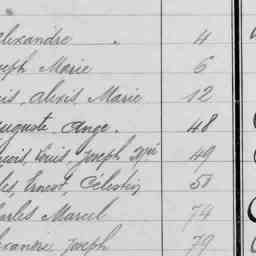 lexandre . 4
seph Marie 6
is, Alexis Marie 12
uguste Ange. 48
Louis, Joseph 49
les Ernest, Célestin 50
harles Marcel 74
exandre Joseph 79